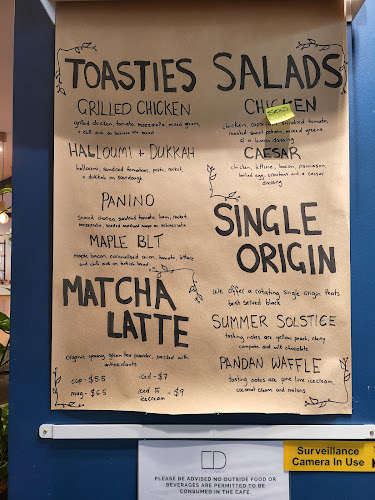 TOASTIES
GRILLED CHICKEN
grilled chicken, tomato, mozzarella, mixed greens,
+ aioli on schiacciata bread
HALLOUMI + DUKKAH
halloumi, sundried tomatoes, pesto, rocket
+ dukkah on sourdough
PANINO
sliced cheese, sundried tomato, ham, rocket,
mozzarella, seeded mustard mayo on schiacciata
MAPLE BLT
maple bacon, caramelised onion, tomato, lettuce
and aioli on turkish bread
MATCHA
LATTE
organic young green tea powder, packed with
antioxidants
cup - $5.5
mug - $6.5
iced - $7
iced + icecream - $9
SALADS
CHICKEN
chicken, sundried tomato,
roasted sweet potato, mixed greens
+ a lemon dressing
CAESAR
chicken, lettuce, bacon, parmesan,
boiled egg, croutons and a caesar
dressing
SINGLE
ORIGIN
We offer a rotating single origin thats
best served black
SUMMER SOLSTICE
tasting notes are yellow peach, cherry
compote and milk chocolate
PANDAN WAFFLE
tasting notes are pine lime icecream,
coconut cream and melons
Surveillance
Camera In Use
PLEASE BE ADVISED NO OUTSIDE FOOD OR
BEVERAGES ARE PERMITTED TO BE
CONSUMED IN THE CAFE.